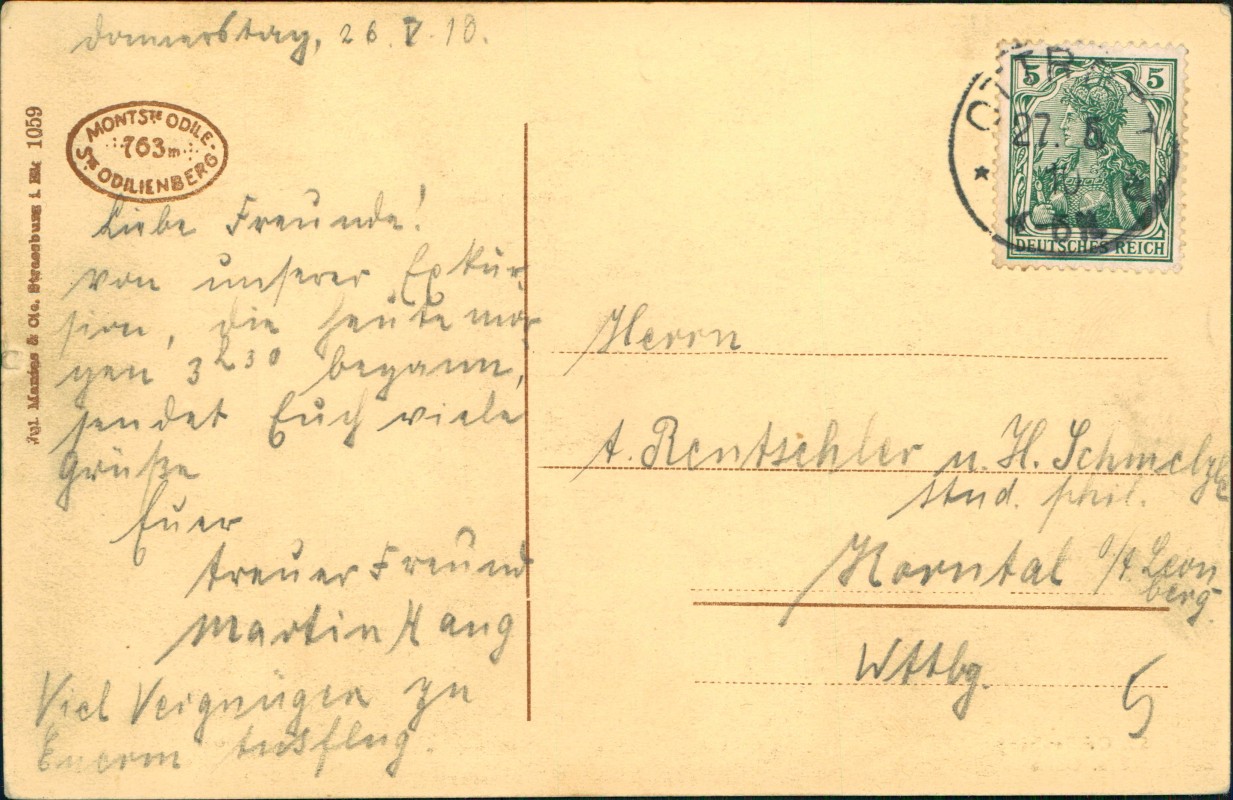 Donnerstag, 26. V. 10.
MONT STE ODILE
763 m
STE ODILIENBERG
Liebe Freunde!
von unserer Exkur-
sion, die heute mor-
gen 3h30 begann,
sendet Euch viele
Grüße
Euer
treuer Freund
Martin Haug
Viel Vergnügen zu
Eurem Ausflug.
Jgl. Manias & Cie. Strassburg i. Els. 1059
5 5
DEUTSCHES REICH
27. 5
10
Herrn
A. Rentschler u. H. Schmelzle
stud. phil.
Korntal O/A Leon
berg.
Wttbg.
5